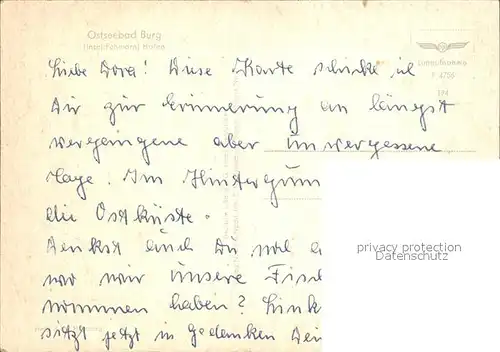 Ostseebad Burg
(Insel Fehmarn) Hafen
Luftaufnahme
F 4756
Liebe Dora! Diese Karte schicke ich
Dir zur Erinnerung an längst
vergangene aber unvergessene
Tage. Im Hintergrun
die Ostküste.
Denkst auch Du mal
wo wir unsere Fisch
nommen haben? Link
sitzt jetzt in Gedanken Dein
privacy protection
Datenschutz